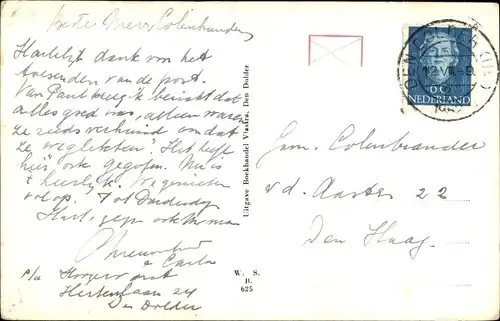 Beste Mevr Colenbrander,
Hartelijk dank voor het
toezenden van de post.
Van Paul kreeg ik bericht dat
alles goed was, alleen waren
ze reeds verhuisd omdat
ze weglekten! Het heeft
hier ook gegoten. Nu is
't heerlijk. We genieten
volop! Tot Donderdag
Hart. gegr. ook
Carla
p/a
Hertenlaan 24
Den Dolder
Uitgave Boekhandel Vlastra, Den Dolder
W. S.
B.
625
DEN DOLDER
6 C
NEDERLAND
Fam. Colenbrander
v.d. Aastr 22
Den Haag